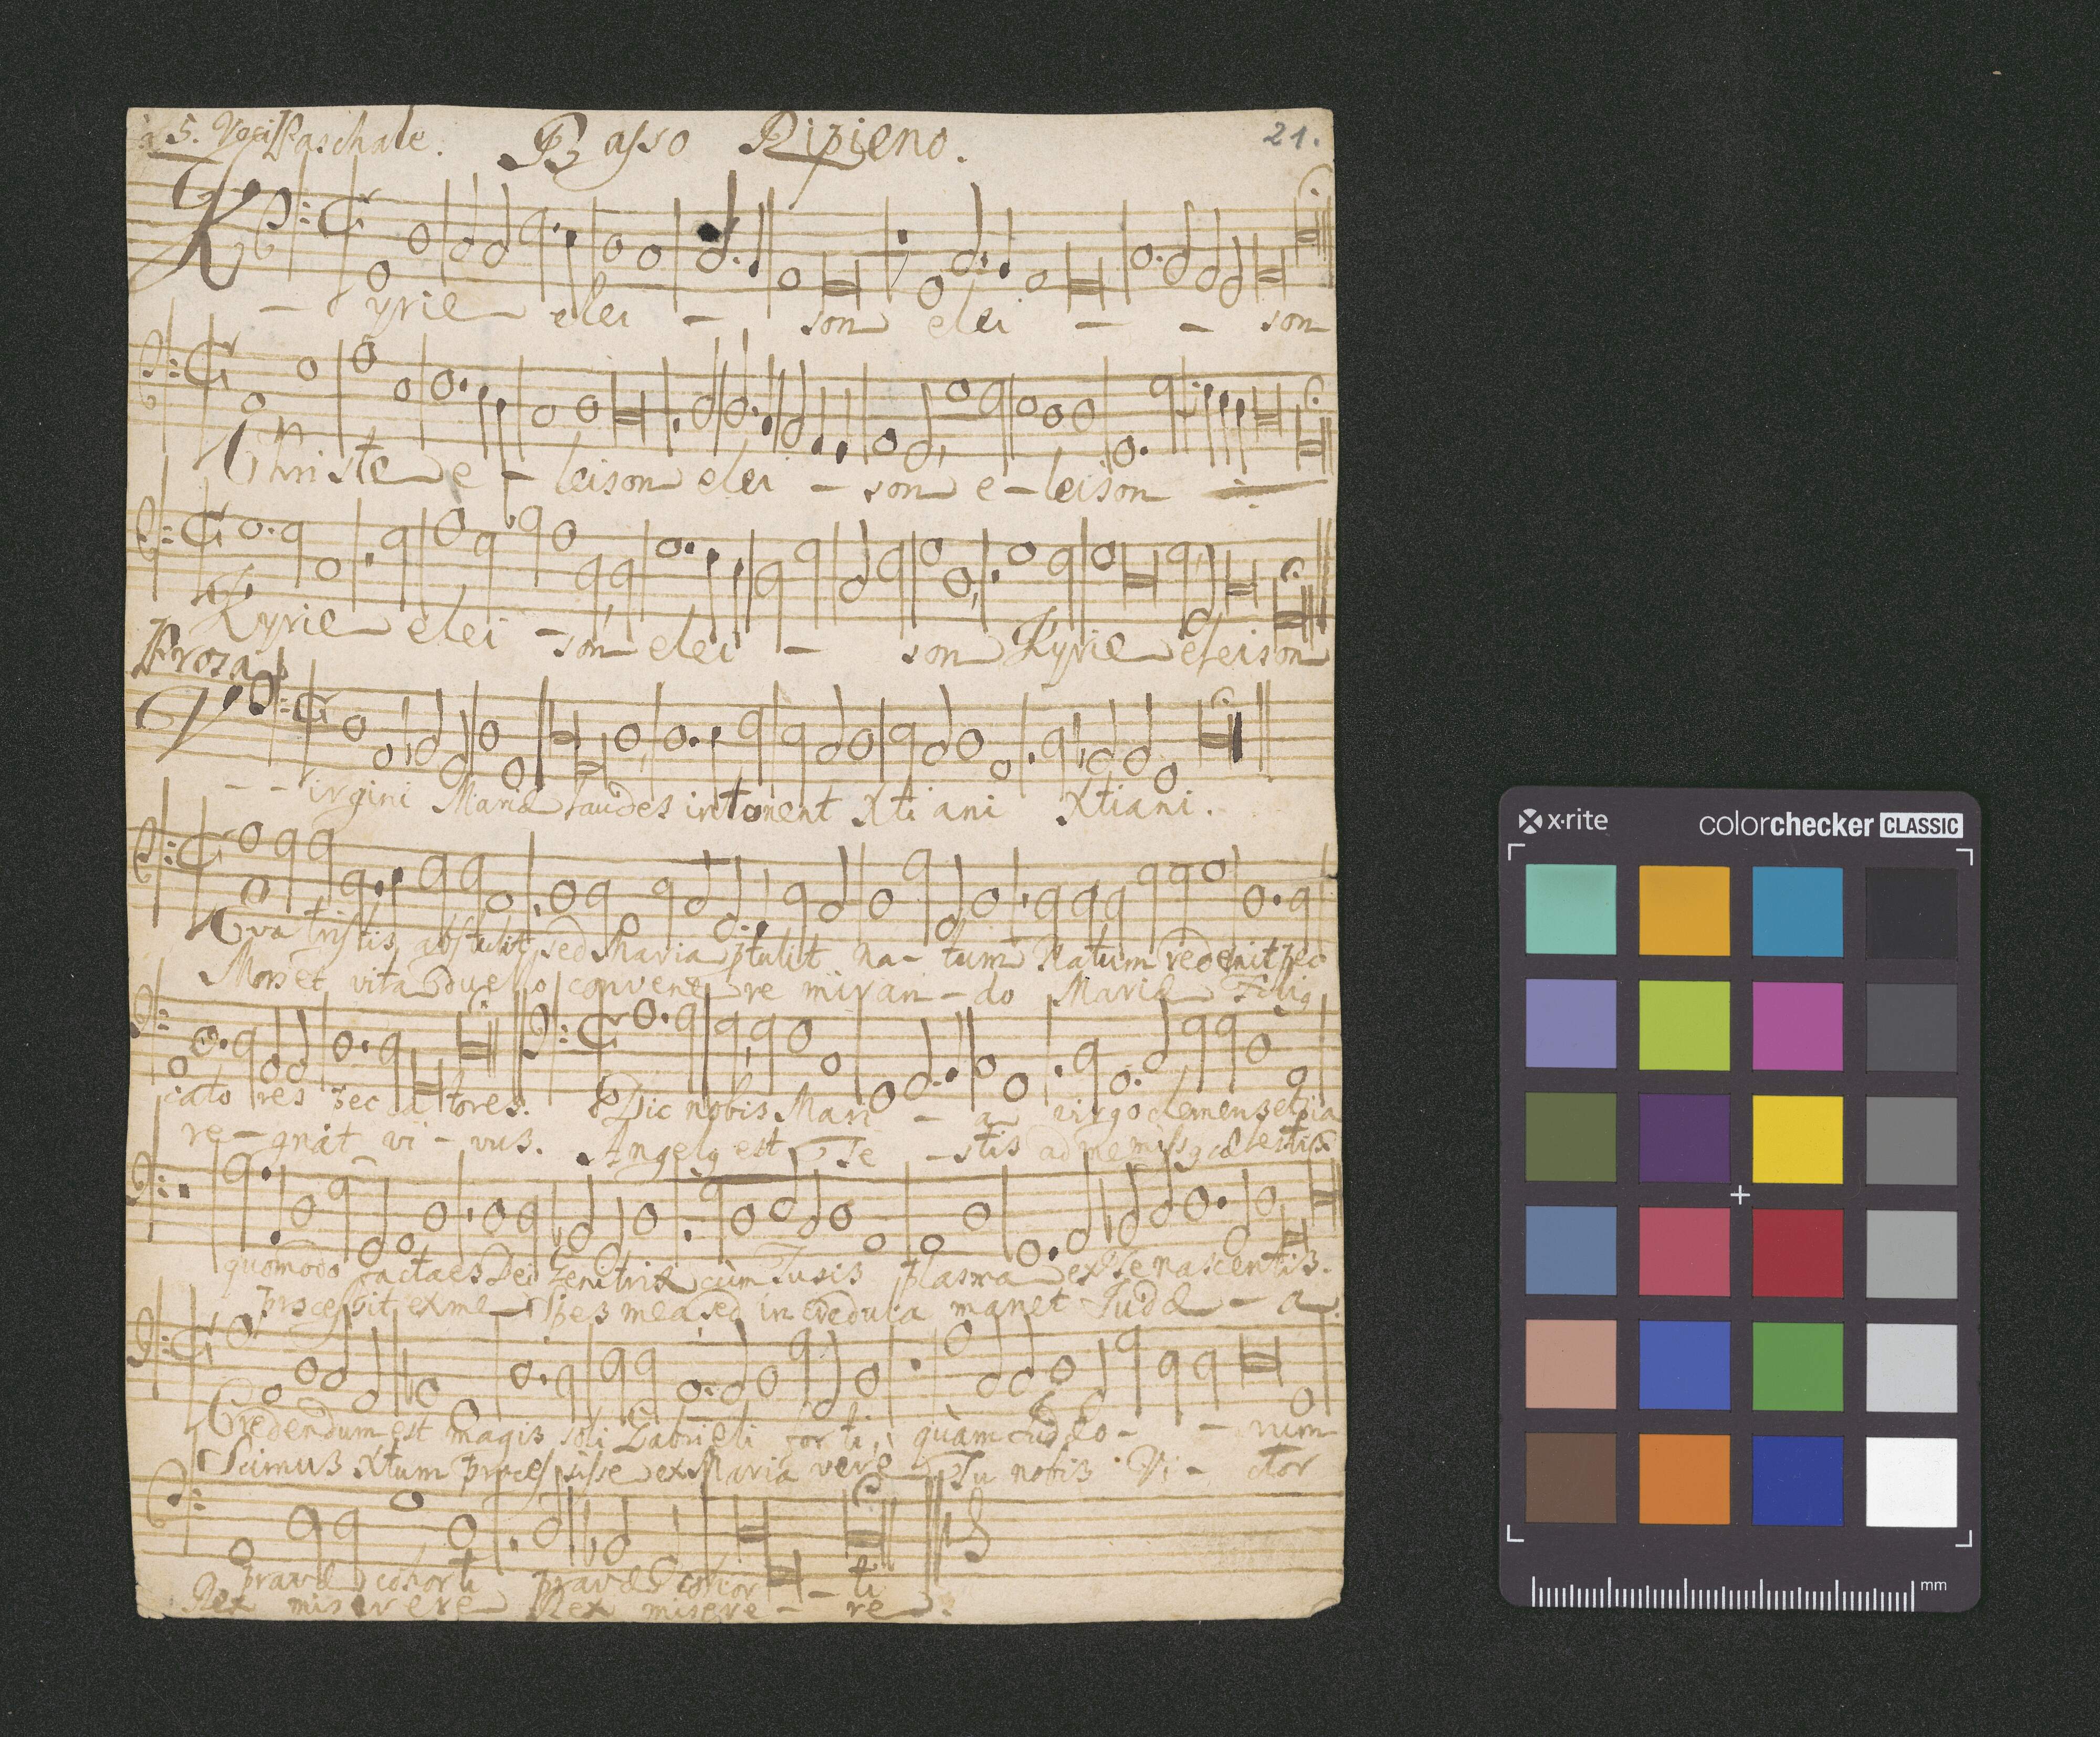 à 5. Voci Paschale. Basso Ripieno. 21.
Kyrie elei - son elei - - son
Christe e - leison elei - son e - leison
Kyrie elei - son elei - son Kyrie eleison
Prosa
Virgini Mariæ laudes intonent Xtiani Xtiani.
Eva tristis abstulit sed Maria ptulit na - tum Natum redemit pec
Mors et vita duello convene re miran - do Mariæ
cato res peccatores. Dic nobis Mari - a virgo clemens et pia
re - gnat vi - vus. est Te - stis ad me cælestis
quomodo facta es Dei genitrix cùm Tu sis plasma ex Te nascentis.
processit ex me Spes mea sed in credula manet Judæ - a
Credendum est magis soli Gabrieli for ti, quàm Judæo - - rum
Scimus Xtum processisse ex Maria verè Tu nobis Vi - ctor
pravæ cohorti pravæ cohor - ti
Rex miserere Rex misere - re.
x·rite colorchecker CLASSIC
mm